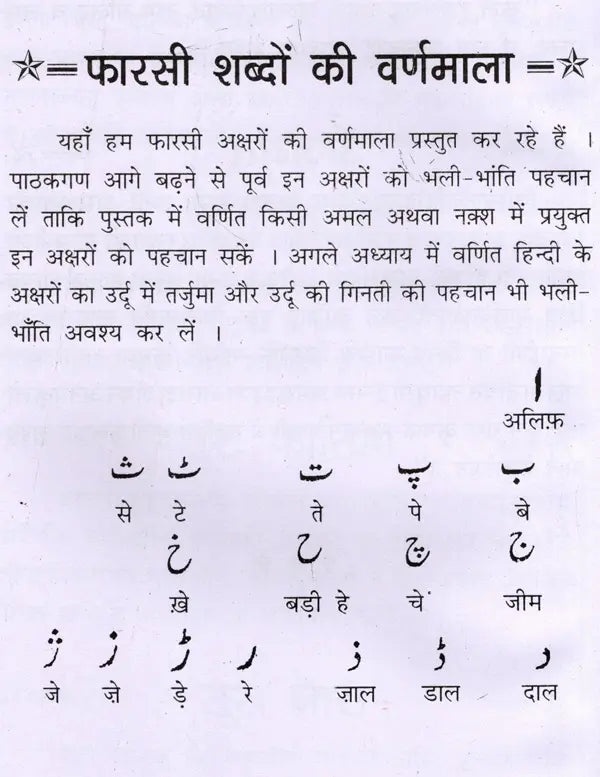 फारसी शब्दों की वर्णमाला
यहाँ हम फारसी अक्षरों की वर्णमाला प्रस्तुत कर रहे हैं ।
पाठकगण आगे बढ़ने से पूर्व इन अक्षरों को भली-भांति पहचान
लें ताकि पुस्तक में वर्णित किसी अमल अथवा नक़्श में प्रयुक्त
इन अक्षरों को पहचान सकें । अगले अध्याय में वर्णित हिन्दी के
अक्षरों का उर्दू में तर्जुमा और उर्दू की गिनती की पहचान भी भली-
भाँति अवश्य कर लें ।
ا
अलिफ़
ب پ ت ٹ ث
से टे ते पे बे
ج چ ح خ
ख़े बड़ी हे चे जीम
د ڈ ذ ر ڑ ز ژ
जे ज़े ड़े रे ज़ाल डाल दाल